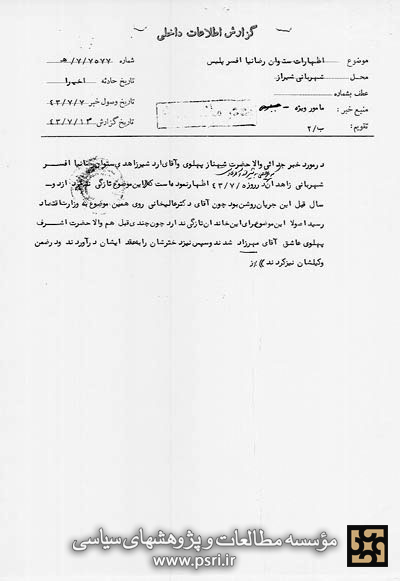 گزارش اطلاعات داخلی
موضوع : اظهارات ستوان رضانیا افسر پلیس شماره ۷/۷۵۷۷/هـ
محل : شهربانی شیراز تاریخ حادثه اخیرا
عطف بشماره : تاریخ وصول خبر ۴۳/۷/۷
منبع خبر : مامور ویژه - تاریخ گزارش ۴۳/۷/۱۳
تقویم : ب/۲
در مورد خبر جدائی والاحضرت شهناز پهلوی و آقای ارد شیر زاهدی ستوان رضانیا افسر
شهربانی در روز ۴۳/۷/۷ اظهار نموده است که این موضوع تازگی ندارد و از دو
سال قبل این جریان روشن بود چون آقای دکتر عالیخانی روی همین موضوع به وزارت اقتصاد
رسید اصولا این موضوع برای این خاندان تازگی ندارد چون چندی قبل هم والا حضرت اشرف
پهلوی عاشق آقای میرزاد شدند و سپس نیز دخترشان را به عقد ایشان در آوردند و در ضمن
وکیلشان نیز کردند
مؤسسه مطالعات و پژوهشهای سیاسی
www.psri.ir